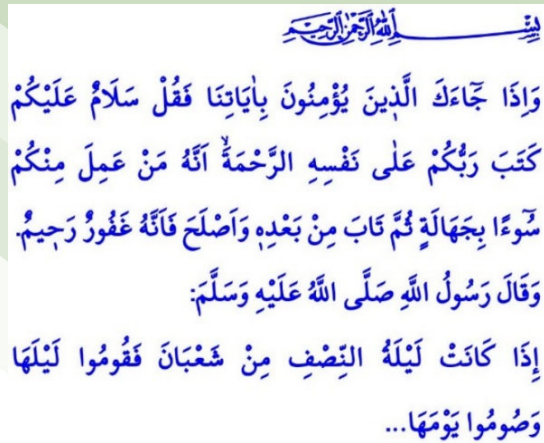 بِسْمِ اللّٰهِ الرَّحْمٰنِ الرَّحِيمِ
وَاِذَا جَٓاءَكَ الَّذ۪ينَ يُؤْمِنُونَ بِاٰيَاتِنَا فَقُلْ سَلَامٌ عَلَيْكُمْ
كَتَبَ رَبُّكُمْ عَلٰى نَفْسِهِ الرَّحْمَةَۙ اَنَّهُ مَنْ عَمِلَ مِنْكُمْ
سُٓوءًا بِجَهَالَةٍ ثُمَّ تَابَ مِنْ بَعْدِه۪ وَاَصْلَحَ فَاَنَّهُ غَفُورٌ رَح۪يمٌ.
وَقَالَ رَسُولُ اللَّهِ صَلَّى اللَّهُ عَلَيْهِ وَسَلَّمَ:
إِذَا كَانَتْ لَيْلَةُ النِّصْفِ مِنْ شَعْبَانَ فَقُومُوا لَيْلَهَا
وَصُومُوا يَوْمَهَا...